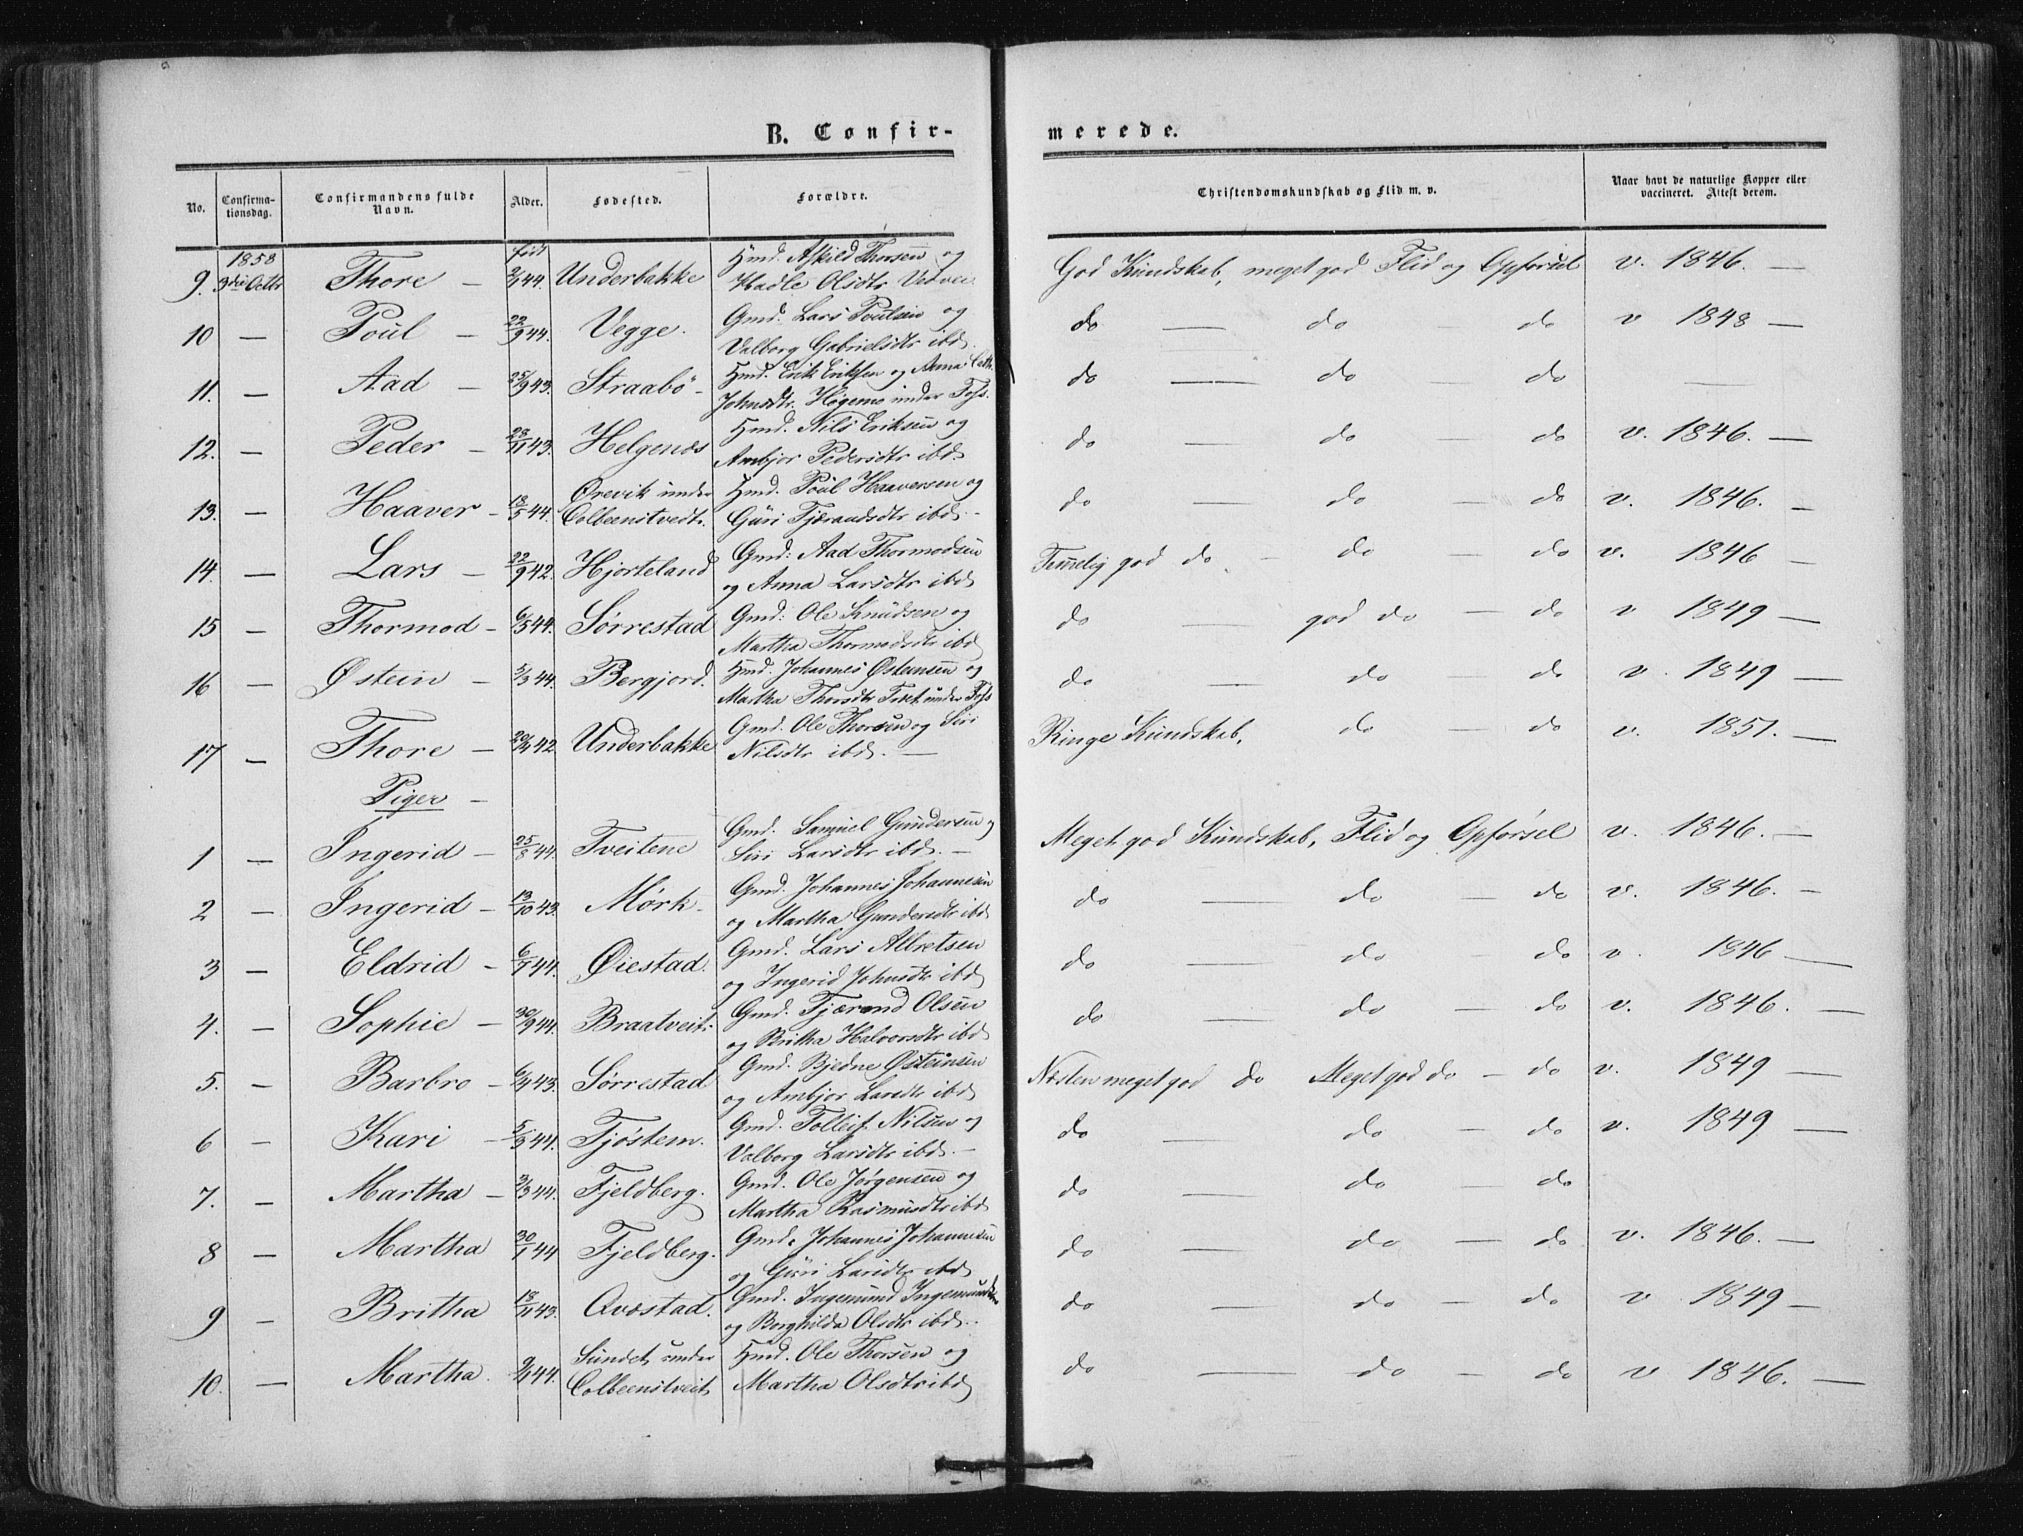 B. Confir-
merede.
No.
Confirma-
tionsdag.
Confirmandens fulde
Navn.
Alder.
Fødested.
Forældre.
Christendomskundskab og Flid m. v.
Naar havt de naturlige Kopper eller
vaccineret. Attest derom.
1858 født Hmd. Askild Thorsen og
9. 3die Octbr Thore — 2/1 44. Underbakke Hadle Olsdtr God Kundskab, meget god Flid og Opførsel v. 1846. —
Gmd. Lars Poulsen og
10 — Poul — 22/9 44. Vegge. Valborg Gabrielsdtr ibd. do — do — do v 1848 —
Hmd. Erik Eriksen og Anna Cath.
11. — Aad — 25/9 43. Straabø - Johnsdtr. Høgemo under Foss. do — do — do —
Hmd. Nils Eriksen og
12. — Peder — 23/11 43. Helgenæs Ambjør Pedersdtr ibd. do — do — do v. 1846. —
Ørevik under Hmd. Poul Haaversen og
13. — Haaver — 18/5 44. Colbeenstvedt. Guri Tjærandsdtr ibd. - do — do — do v. 1846. —
Gmd: Aad Thormodsen
14. — Lars — 22/9 42. Hjorteland og Anna Larsdtr ibd Temelig god do - do — do v. 1846 —
Gmd: Ole Knudsen og
15 — Thormod — 6/5 44. Sørrestad Martha Thormodsdtr ibd do — god do — do v 1849 —
Hmd. Johannes Østensen og
16 — Østein — 5/3 44. Bergjord. Martha Thorsdtr under Foss do — do — do v. 1849 —
Gmd. Ole Thorsen og Siri
17 — Thore — 20/11 42. Underbakke Nilsdtr ibd. — Ringe Kundskab, do — do v. 1851. —
Piger —
Gmd. Samuel Gundersen og
1 — Ingerid — 25/8 44. Tveitene Siri Larsdtr ibd. — Meget god Kundskab, Flid og Opførsel v. 1846. —
Gmd. Johannes Johannesen
2 — Ingerid — 13/10 43. Mørk - og Martha Gundersdtr ibd do — do — do v. 1846. —
Gmd. Lars Albretsen
3 — Eldrid — 6/1 44. Øiestad. og Ingerid Johnsdtr ibd do — do - do v. 1846 —
Gmd. Tjærand Olsen
4. — Sophie — 30/9 44. Braatveit. og Britha Halvorsdtr ibd do — do — do v. 1846. —
Gmd. Bjedne Østeinsen
5. — Barbro — 6/11 43. Sørrestad og Ambjør Larsdtr ibd Næsten meget god do Meget god do — do v. 1849 —
Gmd. Tolleif Nilsen og
6 — Kari — 5/3 44. Tjøstem. Valborg Larsdtr ibd. — do — do — do v. 1849 —
Gmd. Ole Jørgensen og
7. — Martha — 3/3 44. Fjeldberg. Martha Rasmusdtr ibd do — do — do
Gmd. Johannes Johannesen
8 — Martha 30/1 44 Fjeldberg. og Guri Larsdtr ibd do — do — do v. 1846. —
Gmd. Ingemund Ingemundsen
9 — Britha 18/11 43. Avestad. og Borghilda Olsdtr ibd. do — do — do v 1849 —
Sundet under Hmd. Ole Thorsen og
10. — Martha. 9/1 44. Colbeenstveit Martha Olsdtr ibd do — do — do v 1846. —